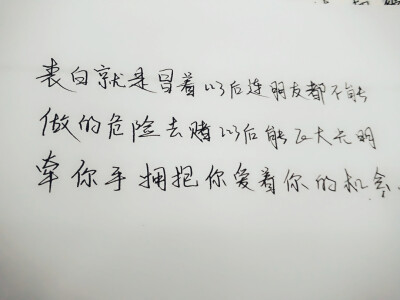 表白就是冒着以后连朋友都不能
做的危险去赌以后能正大光明
牵你手拥抱你爱着你的机会